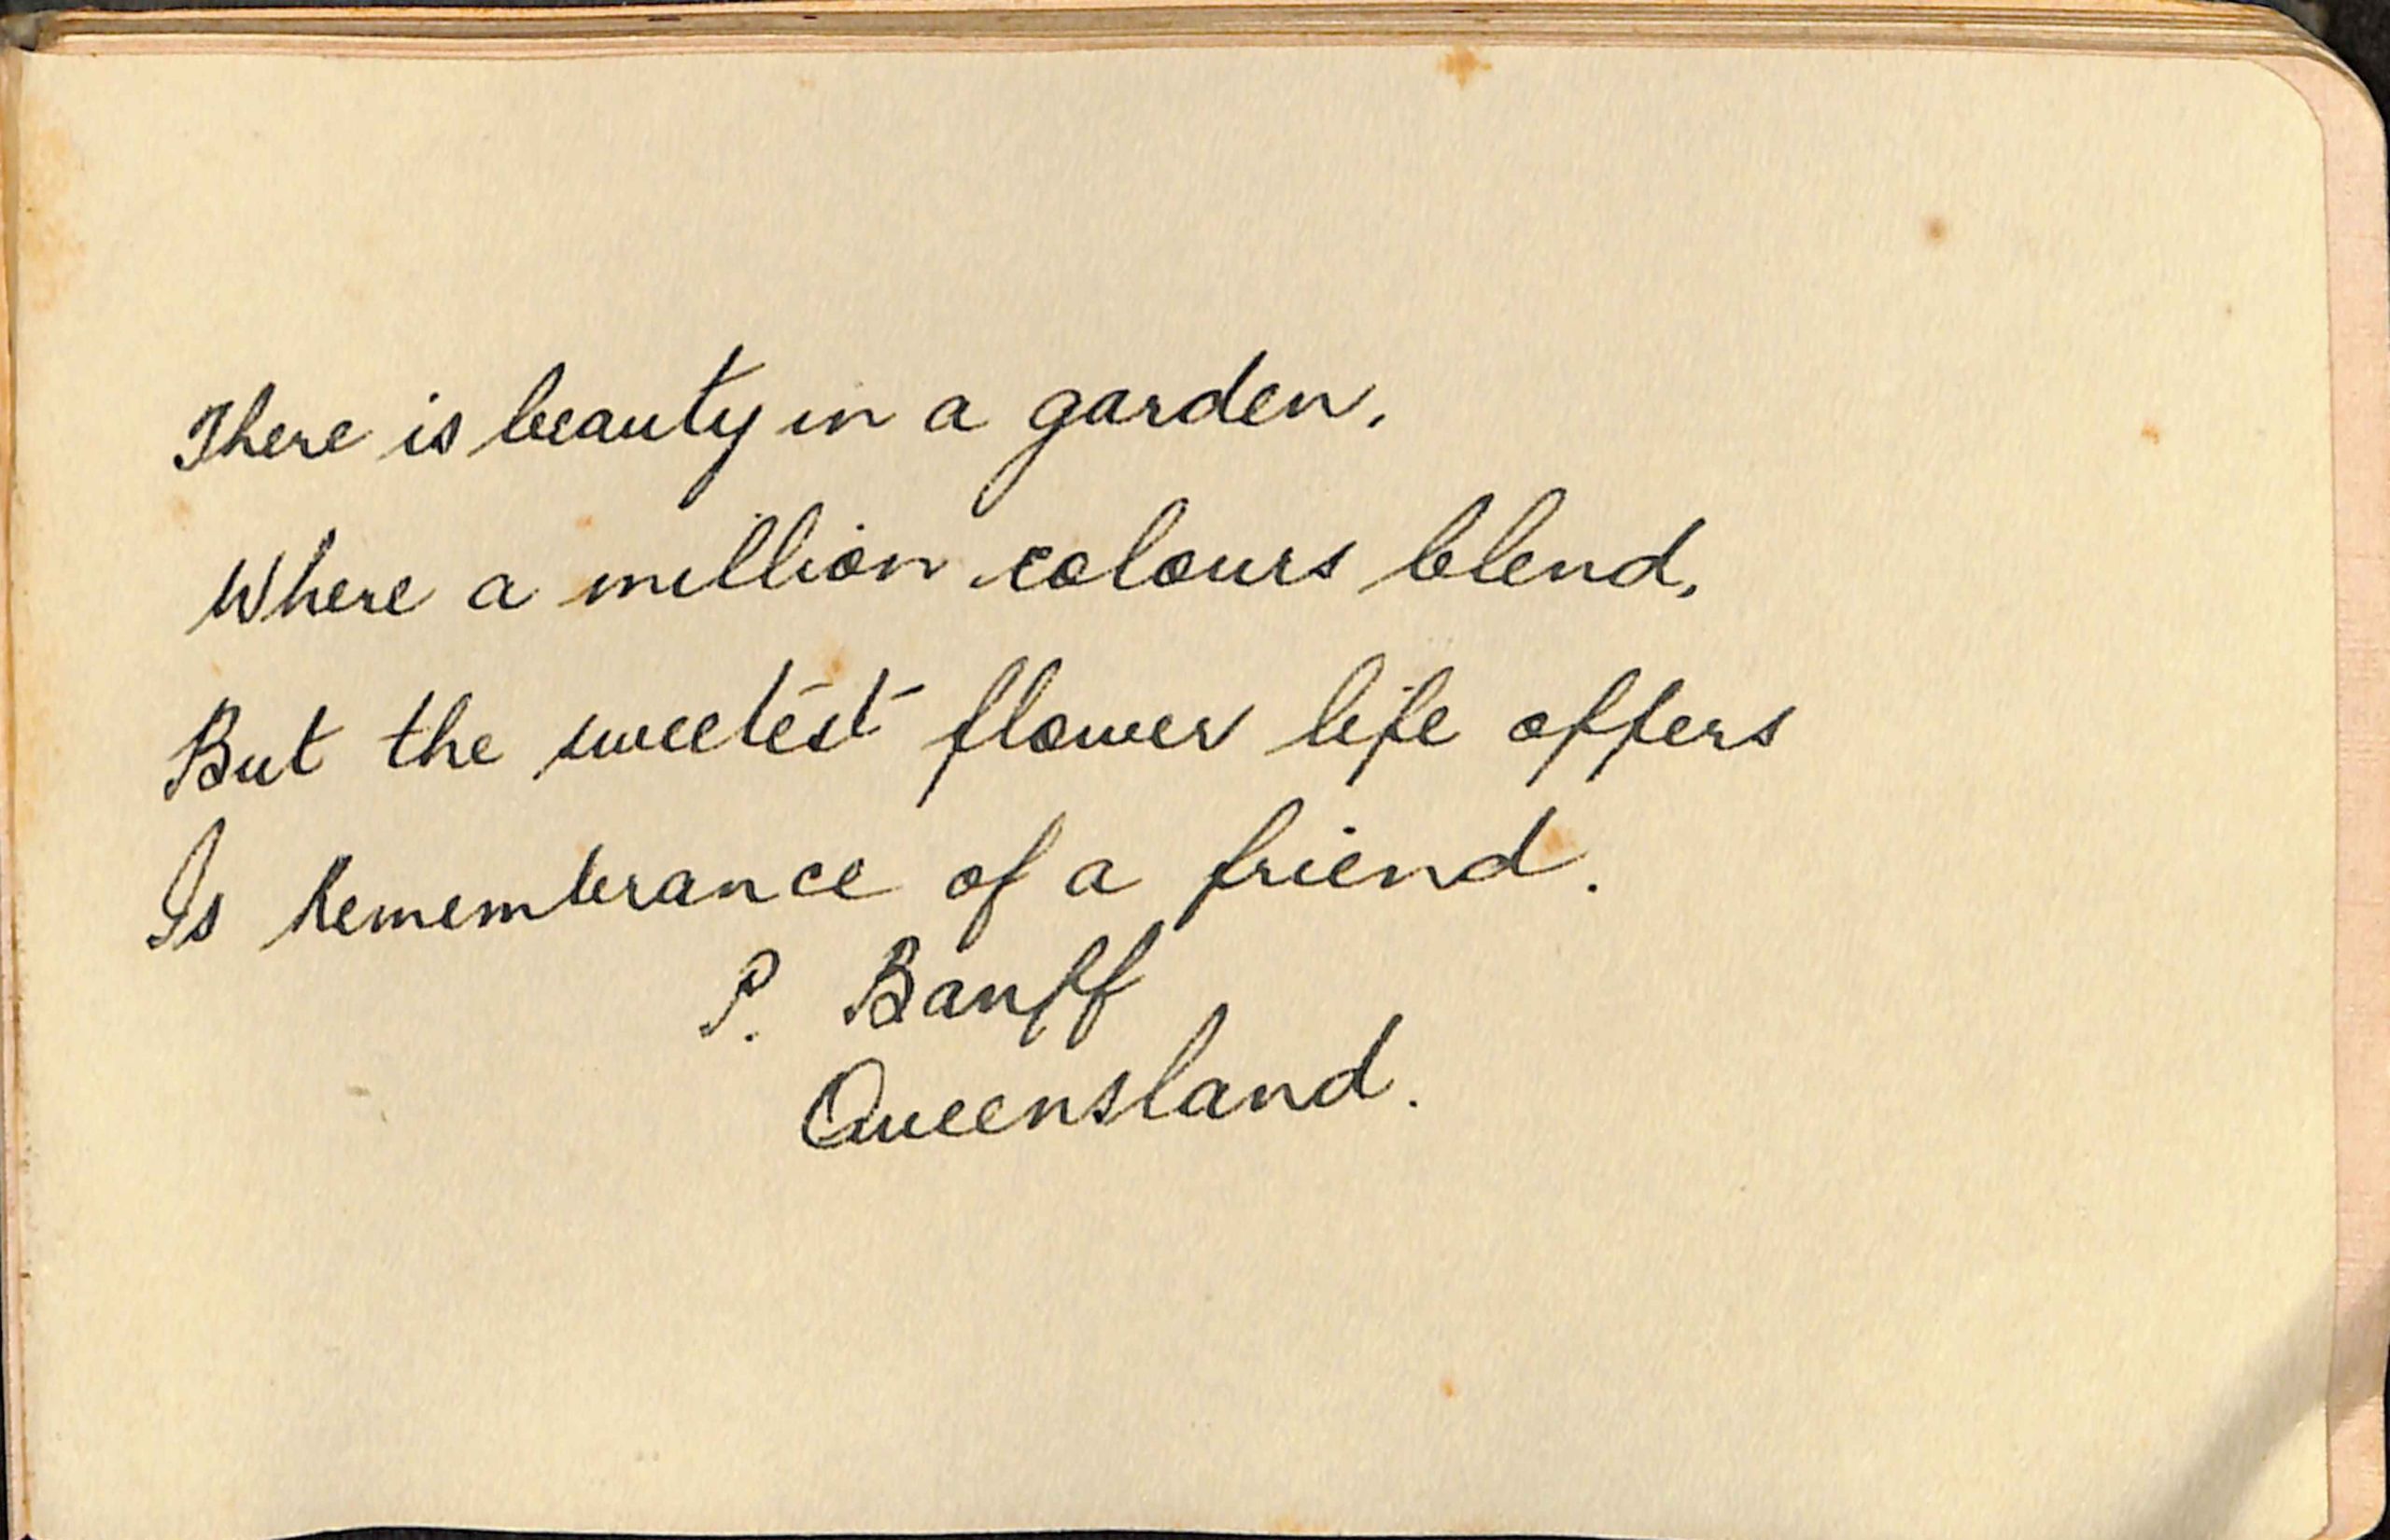 There is beauty in a garden,
Where a million colours blend,
But the sweetest flower life offers
Is Remembrance of a friend.
P. Banff
Queensland.